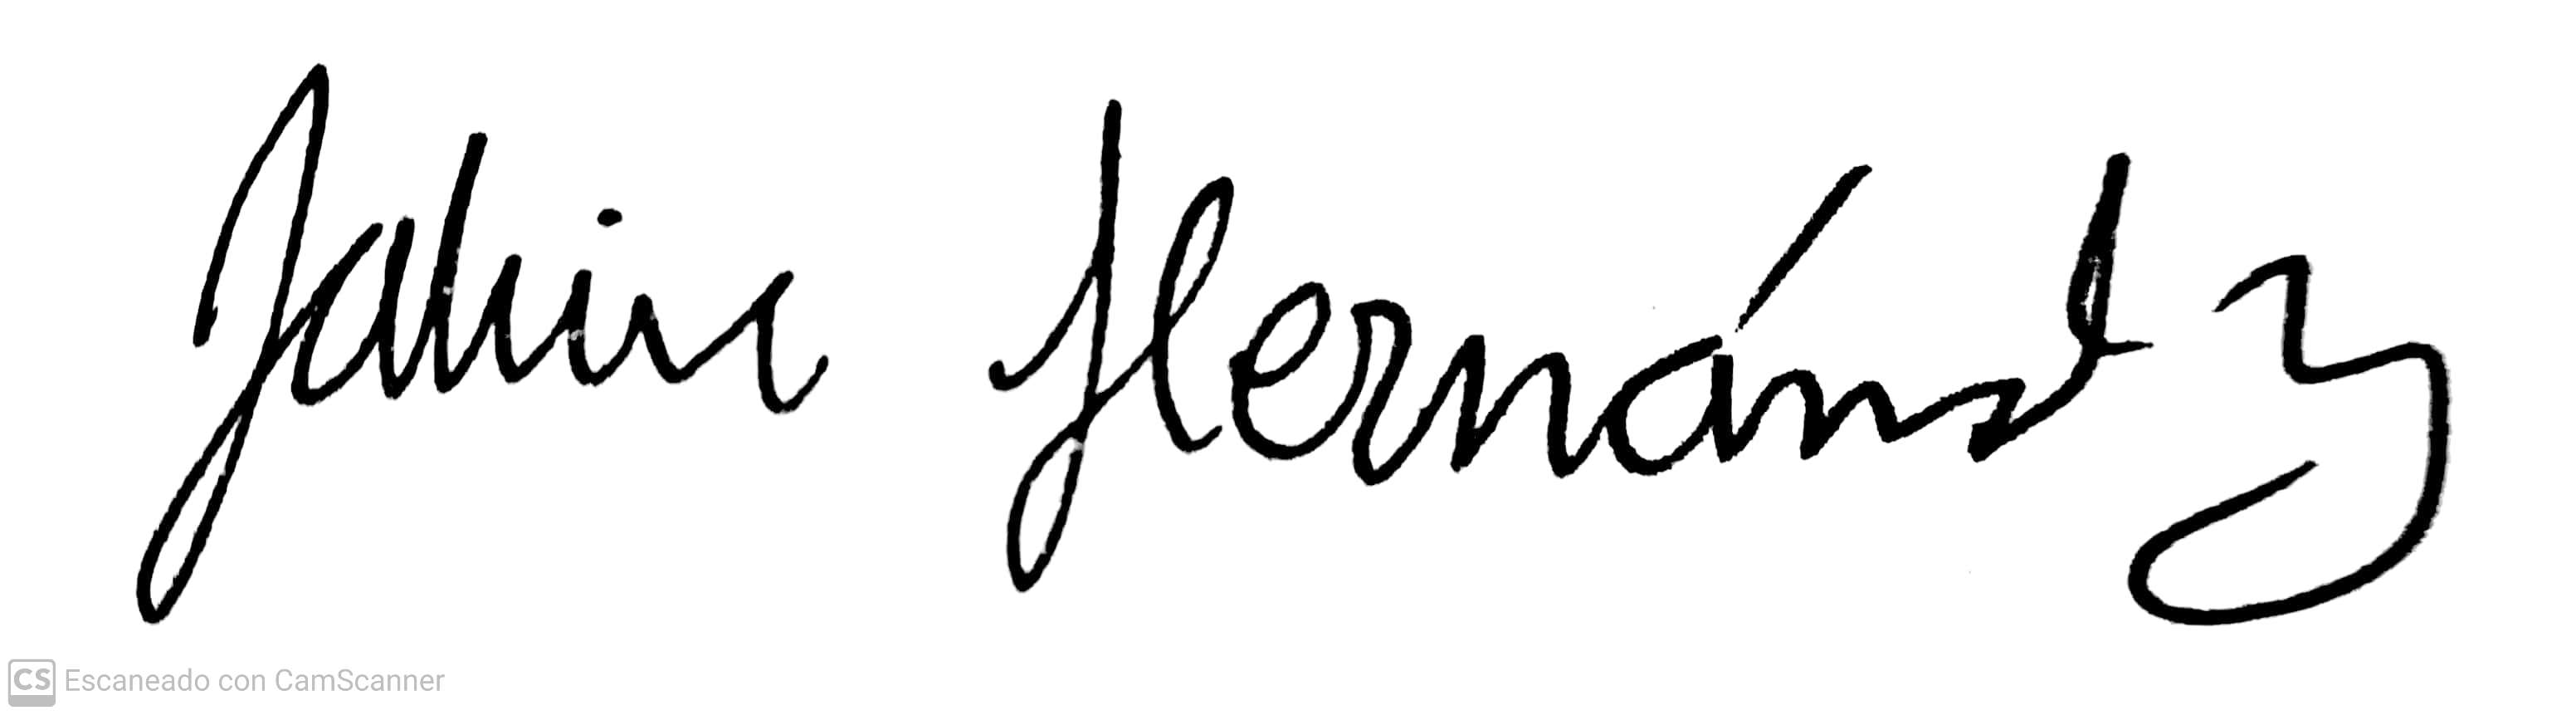 Hernández
CS Escaneado con CamScanner